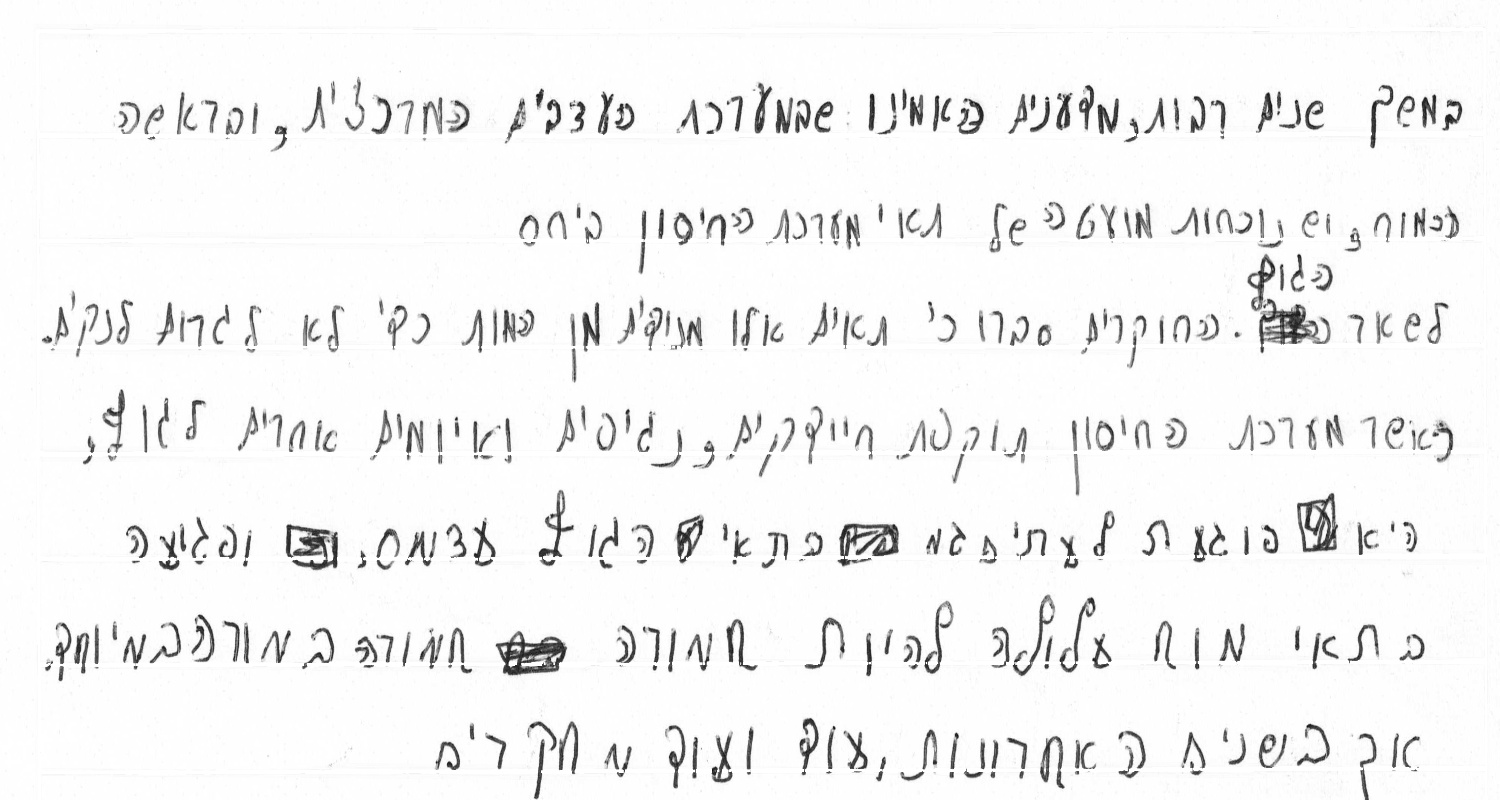 במשך שנים רבות, מדענים האמינו שבמערכת העצבים המרכזית, ובראשה
במוח, יש נוכחות מועטה של תאי מערכת החיסון ביחס
לשאר הגוף. החוקרים סברו כי תאים אלו מנופים מן המוח כדי לא לגרות לנקים.
כאשר מערכת החיסון תוקפת חיידקים, נגיפים ואיומים אחרים לגוף,
היא פוגעת לעתים גם בתאי הגוף עצמם, ופגיעה
בתאי מוח עלולה להיות חמורה חמורה במורה במיוחד.
אך בשנים האחרונות, עוד ועוד מחקרים